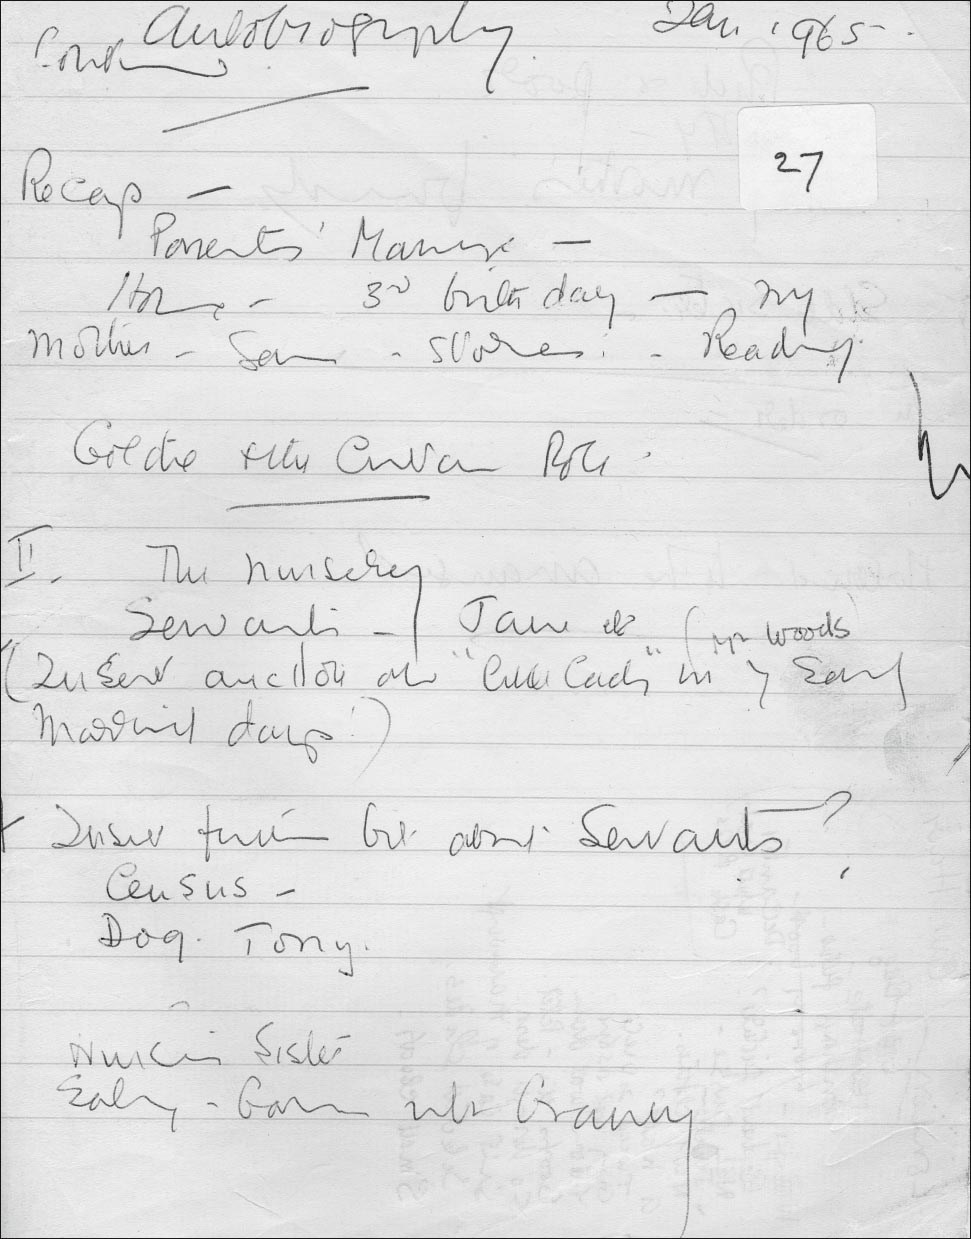 Autobiography Jan 1965.
27
Recap —
Parents' Marriage —
Home - 3rd birthday — my
Mother - Sam - stories - Reading
Goldie & the Curtain Pole
II. The nursery
Servants - Jane & (Mrs Woods)
(Insert auction & "Little Lady" in my Early
Married days!)
Insert further bit about Servants?
Census -
Dog. Tony.
Nursie's Sister
- Games with Granny